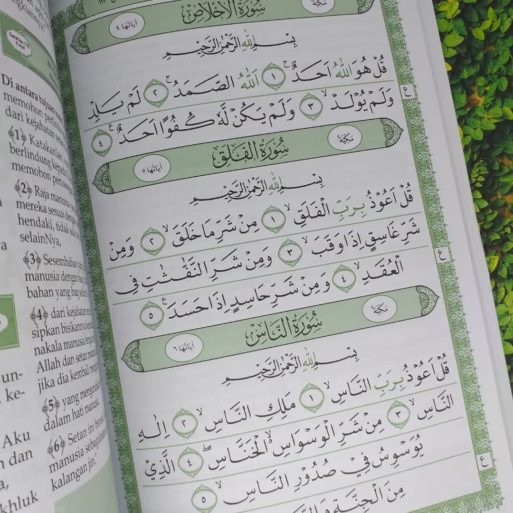 سُوْرَةُ الْاِخْلَاصِ
مَكِّيَّة
اٰيَاتُهَا ٤
بِسْمِ اللّٰهِ الرَّحْمٰنِ الرَّحِيْمِ
قُلْ هُوَ اللّٰهُ اَحَدٌۚ ١ اَللّٰهُ الصَّمَدُۚ ٢ لَمْ يَلِدْ
وَلَمْ يُوْلَدْۙ ٣ وَلَمْ يَكُنْ لَّهٗ كُفُوًا اَحَدٌ ٤
مَكِّيَّة
سُوْرَةُ الْفَلَقِ
اٰيَاتُهَا ٥
بِسْمِ اللّٰهِ الرَّحْمٰنِ الرَّحِيْمِ
قُلْ اَعُوْذُ بِرَبِّ الْفَلَقِۙ ١ مِنْ شَرِّ مَا خَلَقَۙ ٢ وَمِنْ
شَرِّ غَاسِقٍ اِذَا وَقَبَۙ ٣ وَمِنْ شَرِّ النَّفّٰثٰتِ فِى
الْعُقَدِۙ ٤ وَمِنْ شَرِّ حَاسِدٍ اِذَا حَسَدَ ٥
مَكِّيَّة
سُوْرَةُ النَّاسِ
اٰيَاتُهَا ٦
بِسْمِ اللّٰهِ الرَّحْمٰنِ الرَّحِيْمِ
قُلْ اَعُوْذُ بِرَبِّ النَّاسِۙ ١ مَلِكِ النَّاسِۙ ٢ اِلٰهِ
النَّاسِۙ ٣ مِنْ شَرِّ الْوَسْوَاسِ الْخَنَّاسِۖ ٤ الَّذِيْ
يُوَسْوِسُ فِيْ صُدُوْرِ النَّاسِۙ ٥
مِنَ الْجِنَّةِ وَالنَّاسِ
Di antara
memohon
dari kejahatan
﴾1﴿ Katakanlah
berlindung kepada
memohon
﴾2﴿ Raja manusia
mereka sesuai dengan
hendaki, tidak
selainNya,
﴾3﴿ Sesembahan
manusia dengan
bahan yang
﴾4﴿ dari kejahatan
sipkan bisikan
nakala manusia
Allah dan setan
jika dia kembali
﴾5﴿ yang
dalam hati manusia
﴾6﴿ Setan ini
manusia sebagaimana
kalangan jin."